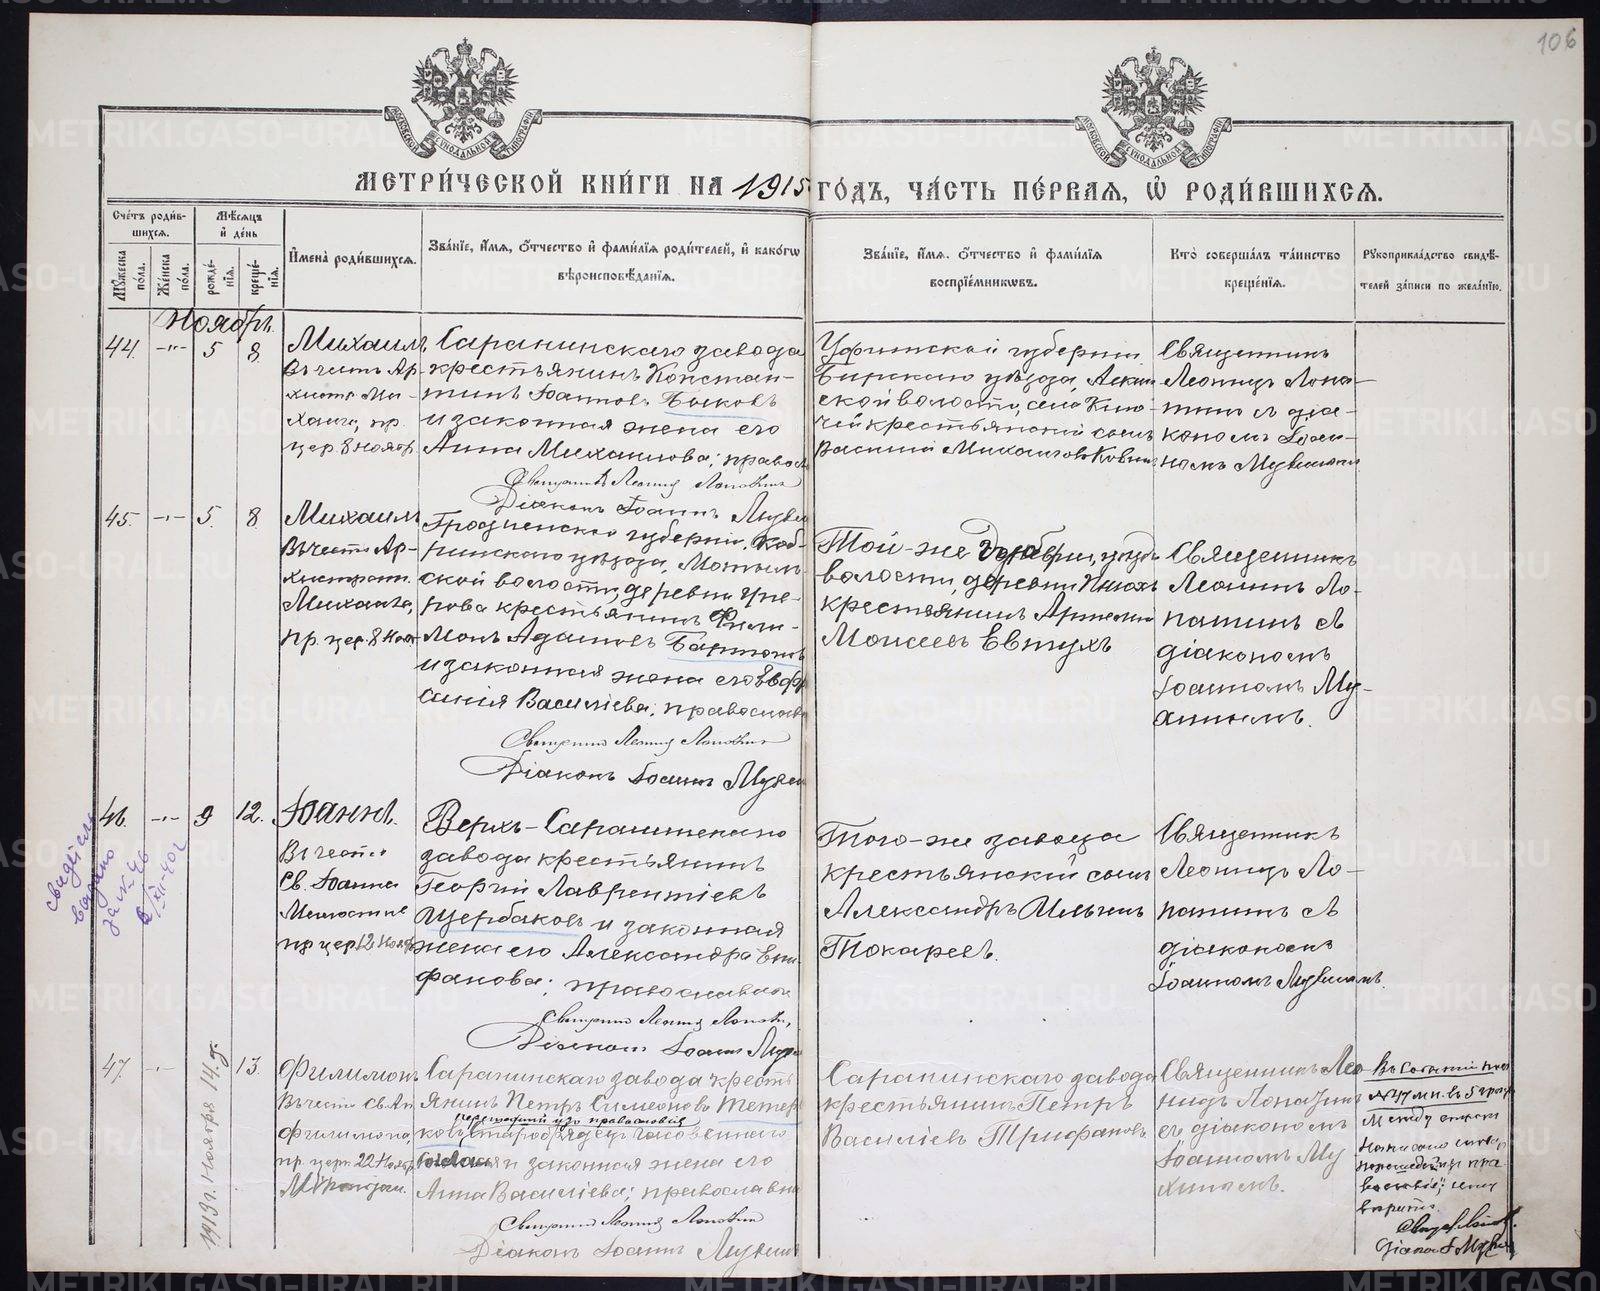 106
МЕТРИ́ЧЕСКОЙ КНИ́ГИ НА 1915 ГО́ДЪ, ЧА́СТЬ ПЕ́РВАЯ, Ѡ҆ РОДИ́ВШИХСѦ.
Сче́тъ роди́в-
шихсѧ.
Мѣ́сѧцъ
и҆ де́нь
Мꙋ́жеска по́ла.
Же́нска по́ла.
рожде́-
нїѧ.
креще́-
нїѧ.
И҆мена̀ роди́вшихсѧ.
Зва́нїе, и҆́мѧ, ѻ҆́тчество и҆ фами́лїѧ роди́телей, и҆ како́гѡ
вѣроисповѣ́данїѧ.
Зва́нїе, и҆́мѧ, ѻ҆́тчество и҆ фами́лїѧ
воспрїе́мникѡвъ.
Кто̀ соверша́лъ та́инство
креще́нїѧ.
Рꙋкоприкла́дство свидѣ́-
телей за́писи по жела́нїю.
Ноябрь
44. -"- 5 8
Михаилъ
Въ честь Ар-
хистр. Ми-
хаила, пр.
цер. 8 нояб.
Саранинскаго завода
крестьянинъ Констан-
тинъ Іоанновъ Быковъ
и законная жена его
Анна Михаилова; правосл.
Священникъ Леонидъ Лопатинъ
Діаконъ Іоаннъ
Уфимской губерніи
Бирскаго уѣзда, Аскин
ской волости, села
крестьянскій сынъ
Василій Михаиловъ
Священникъ
Леонидъ Лопа-
тинъ съ діа-
кономъ Іоан-
номъ
45. -"- 5. 8
Михаилъ
Въ честь Ар-
хистрат.
Михаила,
пр. цер. 8 нояб.
Гродненской губерніи, Коб-
ринскаго уѣзда, Мотыль-
ской волости, деревни
крестьянинъ Фили-
монъ Адамовъ
и законная жена его Евфро
синія Василіева; православн
Священникъ Леонидъ Лопатинъ
Діаконъ Іоаннъ
Той-же губерніи, уѣзда
волости, деревни
крестьянинъ
Моисеевъ Евтухъ
Священникъ
Леонидъ Ло-
патинъ съ
діакономъ
Іоанномъ
46. -"- 9 12.
Іоаннъ.
Въ честь
Св. Іоанна
Милостив
пр. цер. 12 нояб.
Верхъ-Саранинскаго
завода крестьянинъ
Георгій Лаврентіевъ
Щербаковъ и законная
жена его Александра Епи
фанова; православные
Священникъ Леонидъ Лопатинъ
Діаконъ Іоаннъ
Того-же завода
крестьянскій сынъ
Александръ Ильинъ
Токаревъ.
Священникъ
Леонидъ Ло-
патинъ съ
діакономъ
Іоанномъ
свидѣтель
выдано
за № 46
47. -"- 1913 г. Ноября 14 д. 13
Филимонъ
Въ честь Св. Ап.
Филимона,
пр. церк. 22 нояб.
Саранинскаго завода кресть
янинъ Петръ Симеоновъ Тетер
перешедшій изъ православія
ковъ старообрядецъ часовеннаго
и законная жена его
Анна Василіева; православна
Священникъ Леонидъ Лопатинъ
Діаконъ Іоаннъ
Саранинскаго завода
крестьянинъ Петръ
Василіевъ Трифановъ.
Священникъ Лео
нидъ Лопатинъ
съ діакономъ
Іоанномъ
№ 47 въ 5 графѣ
между строкъ
написано слово